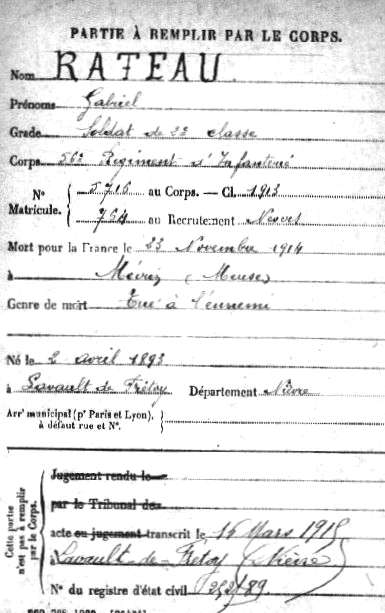 PARTIE À REMPLIR PAR LE CORPS.
Nom RATEAU
Prénoms Gabriel
Grade Soldat de 2e classe
Corps 56e Régiment d'Infanterie
N° Matricule. { 5716 au Corps. — Cl. 1913
764 au Recrutement Nevers
Mort pour la France le 23 Novembre 1914
à (Meuse)
Genre de mort Tué à l'ennemi
Né le 2 avril 1893
à Lavault de Frétoy Département Nièvre
Arr' municipal (p' Paris et Lyon),
à défaut rue et N°.
Cette partie n'est pas à remplir par le Corps.
Jugement rendu le
par le Tribunal de
acte ou jugement transcrit le 16 Mars 1915
à Lavault-de-Frétoy (Nièvre)
N° du registre d'état civil